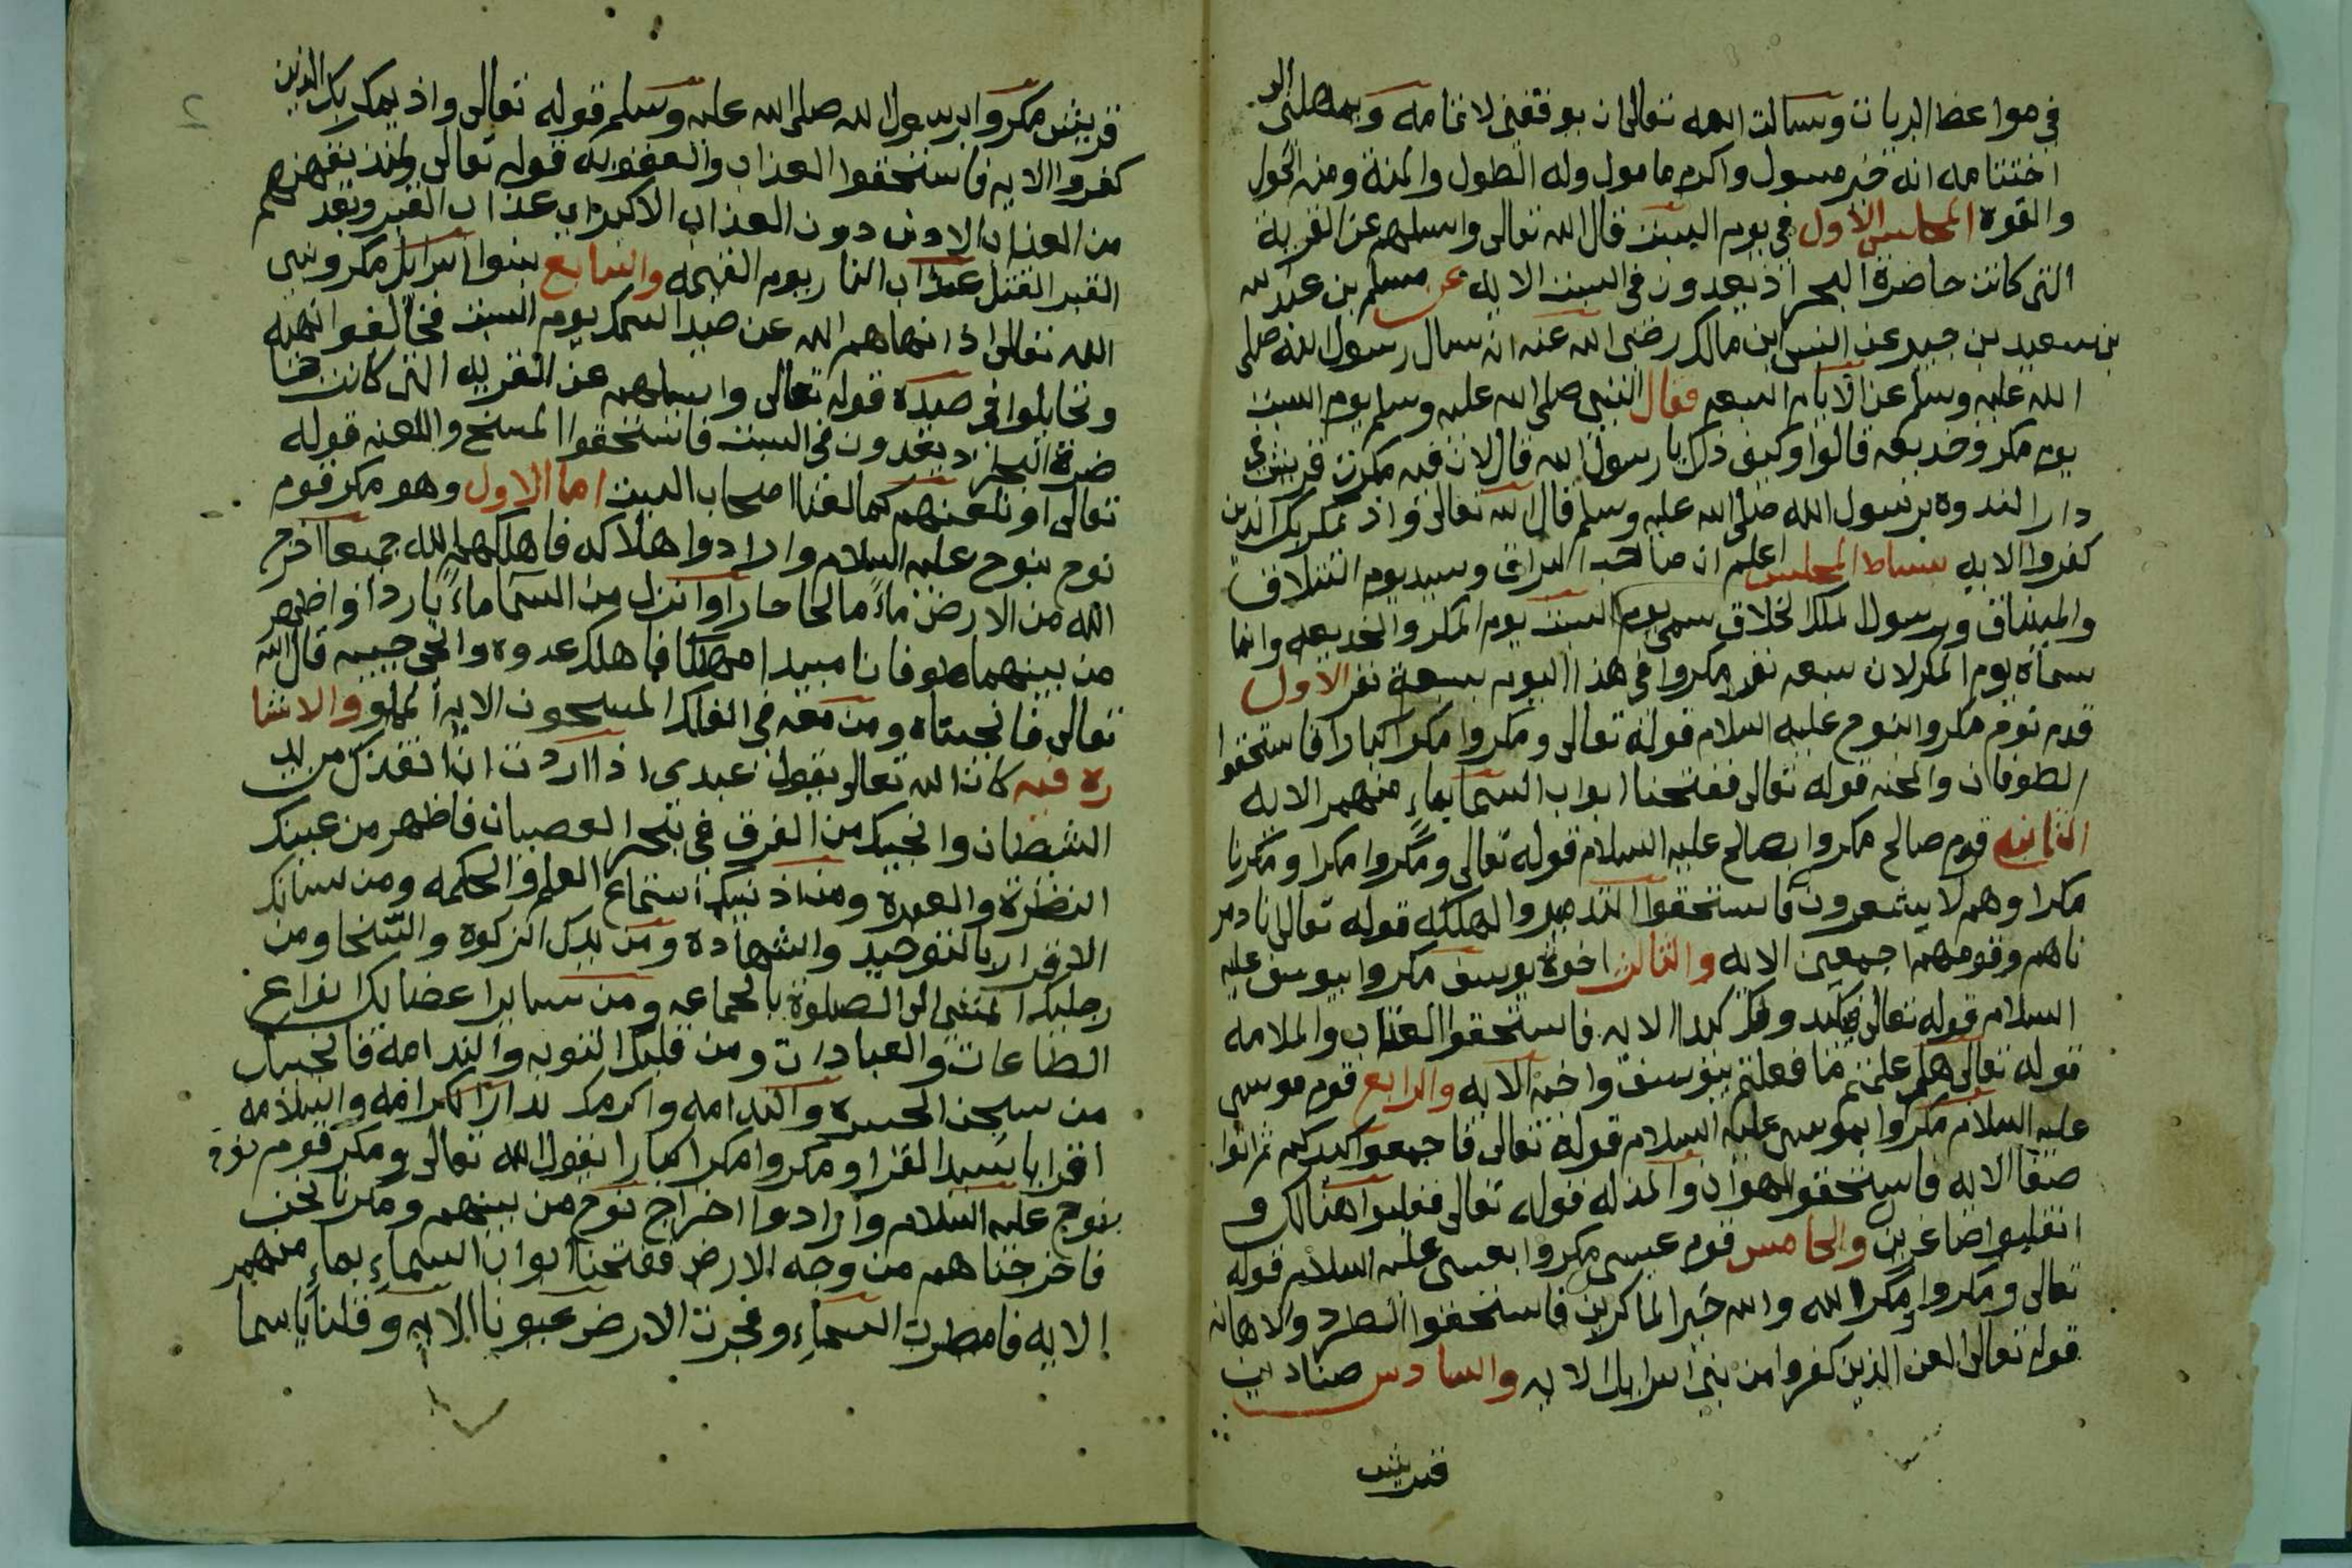 في مواعظ البريات وسالت الله تعالى ان يوفقني لاتمامه ويمهلني الى
اختتامه انه خير مسول واكرم مامول وله الطول والمنة ومنه الحول
والقوة المجلس الاول في يوم السبت قال الله تعالى واسلهم عن القرية
التي كانت حاضرة البحر اذ يعدون في السبت الايه عن مسلم بن عبد الله
بن سعيد بن جبير عن انس ابن مالك رضي الله عنه انه سال رسول الله صلى
الله عليه وسلم عن الايام السبعه فقال النبي صلى الله عليه وسلم يوم السبت
يوم مكر وخديعه قالوا وكيف ذلك يا رسول الله قال لان فيه مكرت قريش في
دار الندوه برسول الله صلى الله عليه وسلم قال الله تعالى واذ يمكر بك الذين
كفروا الايه بساط المجلس اعلم ان صاحب البراق وسيد يوم التلاق
والميثاق ورسول الملك الخلاق سمى يوم السبت يوم المكر والخديعه وانما
سماه يوم المكر لان سبعه نفر مكروا في هذا اليوم بسبعة نفر الاول
قوم نوح مكروا بنوح عليه السلام قوله تعالى ومكروا مكرا كبارا فاستحقوا
الطوفان والمحنه قوله تعالى ففتحنا ابواب السما بماء منهمر الايه
الثانيه قوم صالح مكروا بصالح عليه السلام قوله تعالى ومكروا مكرا ومكرنا
مكرا وهم لا يشعرون فاستحقوا التدمير والهلكه قوله تعالى انا دمر
ناهم وقومهم اجمعين الايه والثالث اخوة يوسف مكروا بيوسف عليه
السلام قوله تعالى فيكيدو لك كيدا الايه فاستحقوا العتاب والملامه
قوله تعالى هل علمتم ما فعلتم بيوسف واخيه الايه والرابع قوم موسى
عليه السلام مكروا بموسى عليه السلام قوله تعالى فاجمعوا كيدكم ثم ائتوا
صفا الايه فاستحقوا الهوان والمذله قوله تعالى فغلبوا هنالك و
انقلبوا صاغرين والخامس قوم عيسى مكروا بعيسى عليه السلام قوله
تعالى ومكروا ومكر الله والله خير الماكرين فاستحقوا الطرد والاهانه
قوله تعالى لعن الذين كفروا من بني اسرايل الايه والسادس صناديد
قريش
2
قريش مكروا برسول الله صلى الله عليه وسلم قوله تعالى واذ يمكر بك الذين
كفروا الايه فاستحقوا العذاب والعقوبه قوله تعالى ولنذيقنهم
من العذاب الادنى دون العذاب الاكبر اي عذاب القبر وبعد
القبر القتل عذاب النار يوم القيمه والسابع بنوا اسرايل مكروا نبي
الله تعالى اذ انهاهم الله عن صيد السمك يوم السبت فخالفوا نهيه
وتحايلوا في صيده قوله تعالى واسلهم عن القريه التي كانت حا
ضرة البحر اذ يعدون في السبت فاستحقوا المسخ واللعنه قوله
تعالى او نلعنهم كما لعنا اصحاب السبت اما الاول وهو مكر قوم
نوح بنوح عليه السلام وارادوا هلاكه فاهلكهم الله جميعا اخرج
الله من الارض ماء مالحا حارا وانزل من السما ماء باردا واظهر
من بينهما طوفانا مبيدا مهلكا فاهلك عدوه وانجى حبيبه قال الله
تعالى فانجيناه ومن معه في الفلك المشحون الايه المملو والاشا
ره فيه كان الله تعالى يقول عبدى اذا اردت ان انقذك من يد
الشيطان وانجيك من الغرق في بحر العصيان فاظهر من عينك
النظرة والعبرة ومن اذنيك استماع العلم والحكمه ومن لسانك
الاقرار بالتوحيد والشهاده ومن يدك الزكوة والسخا ومن
رجليك المشي الى الصلوة بالجماعه ومن ساير اعضائك انواع
الطاعات والعبادات ومن قلبك التوبه والندامه فانجيك
من سجن الحسره والندامه واكرمك بدار الكرامه والسلامه
اقرا يا سيد القرا ومكروا مكرا كبارا يقول الله تعالى ومكر قوم نوح
بنوح عليه السلام وارادوا اخراج نوح من بينهم ومكرنا نحن
فاخرجناهم من وجه الارض ففتحنا ابواب السماء بماء منهمر
الايه فامطرت السماء وفجرت الارض عيونا الايه وقلنا يا سما